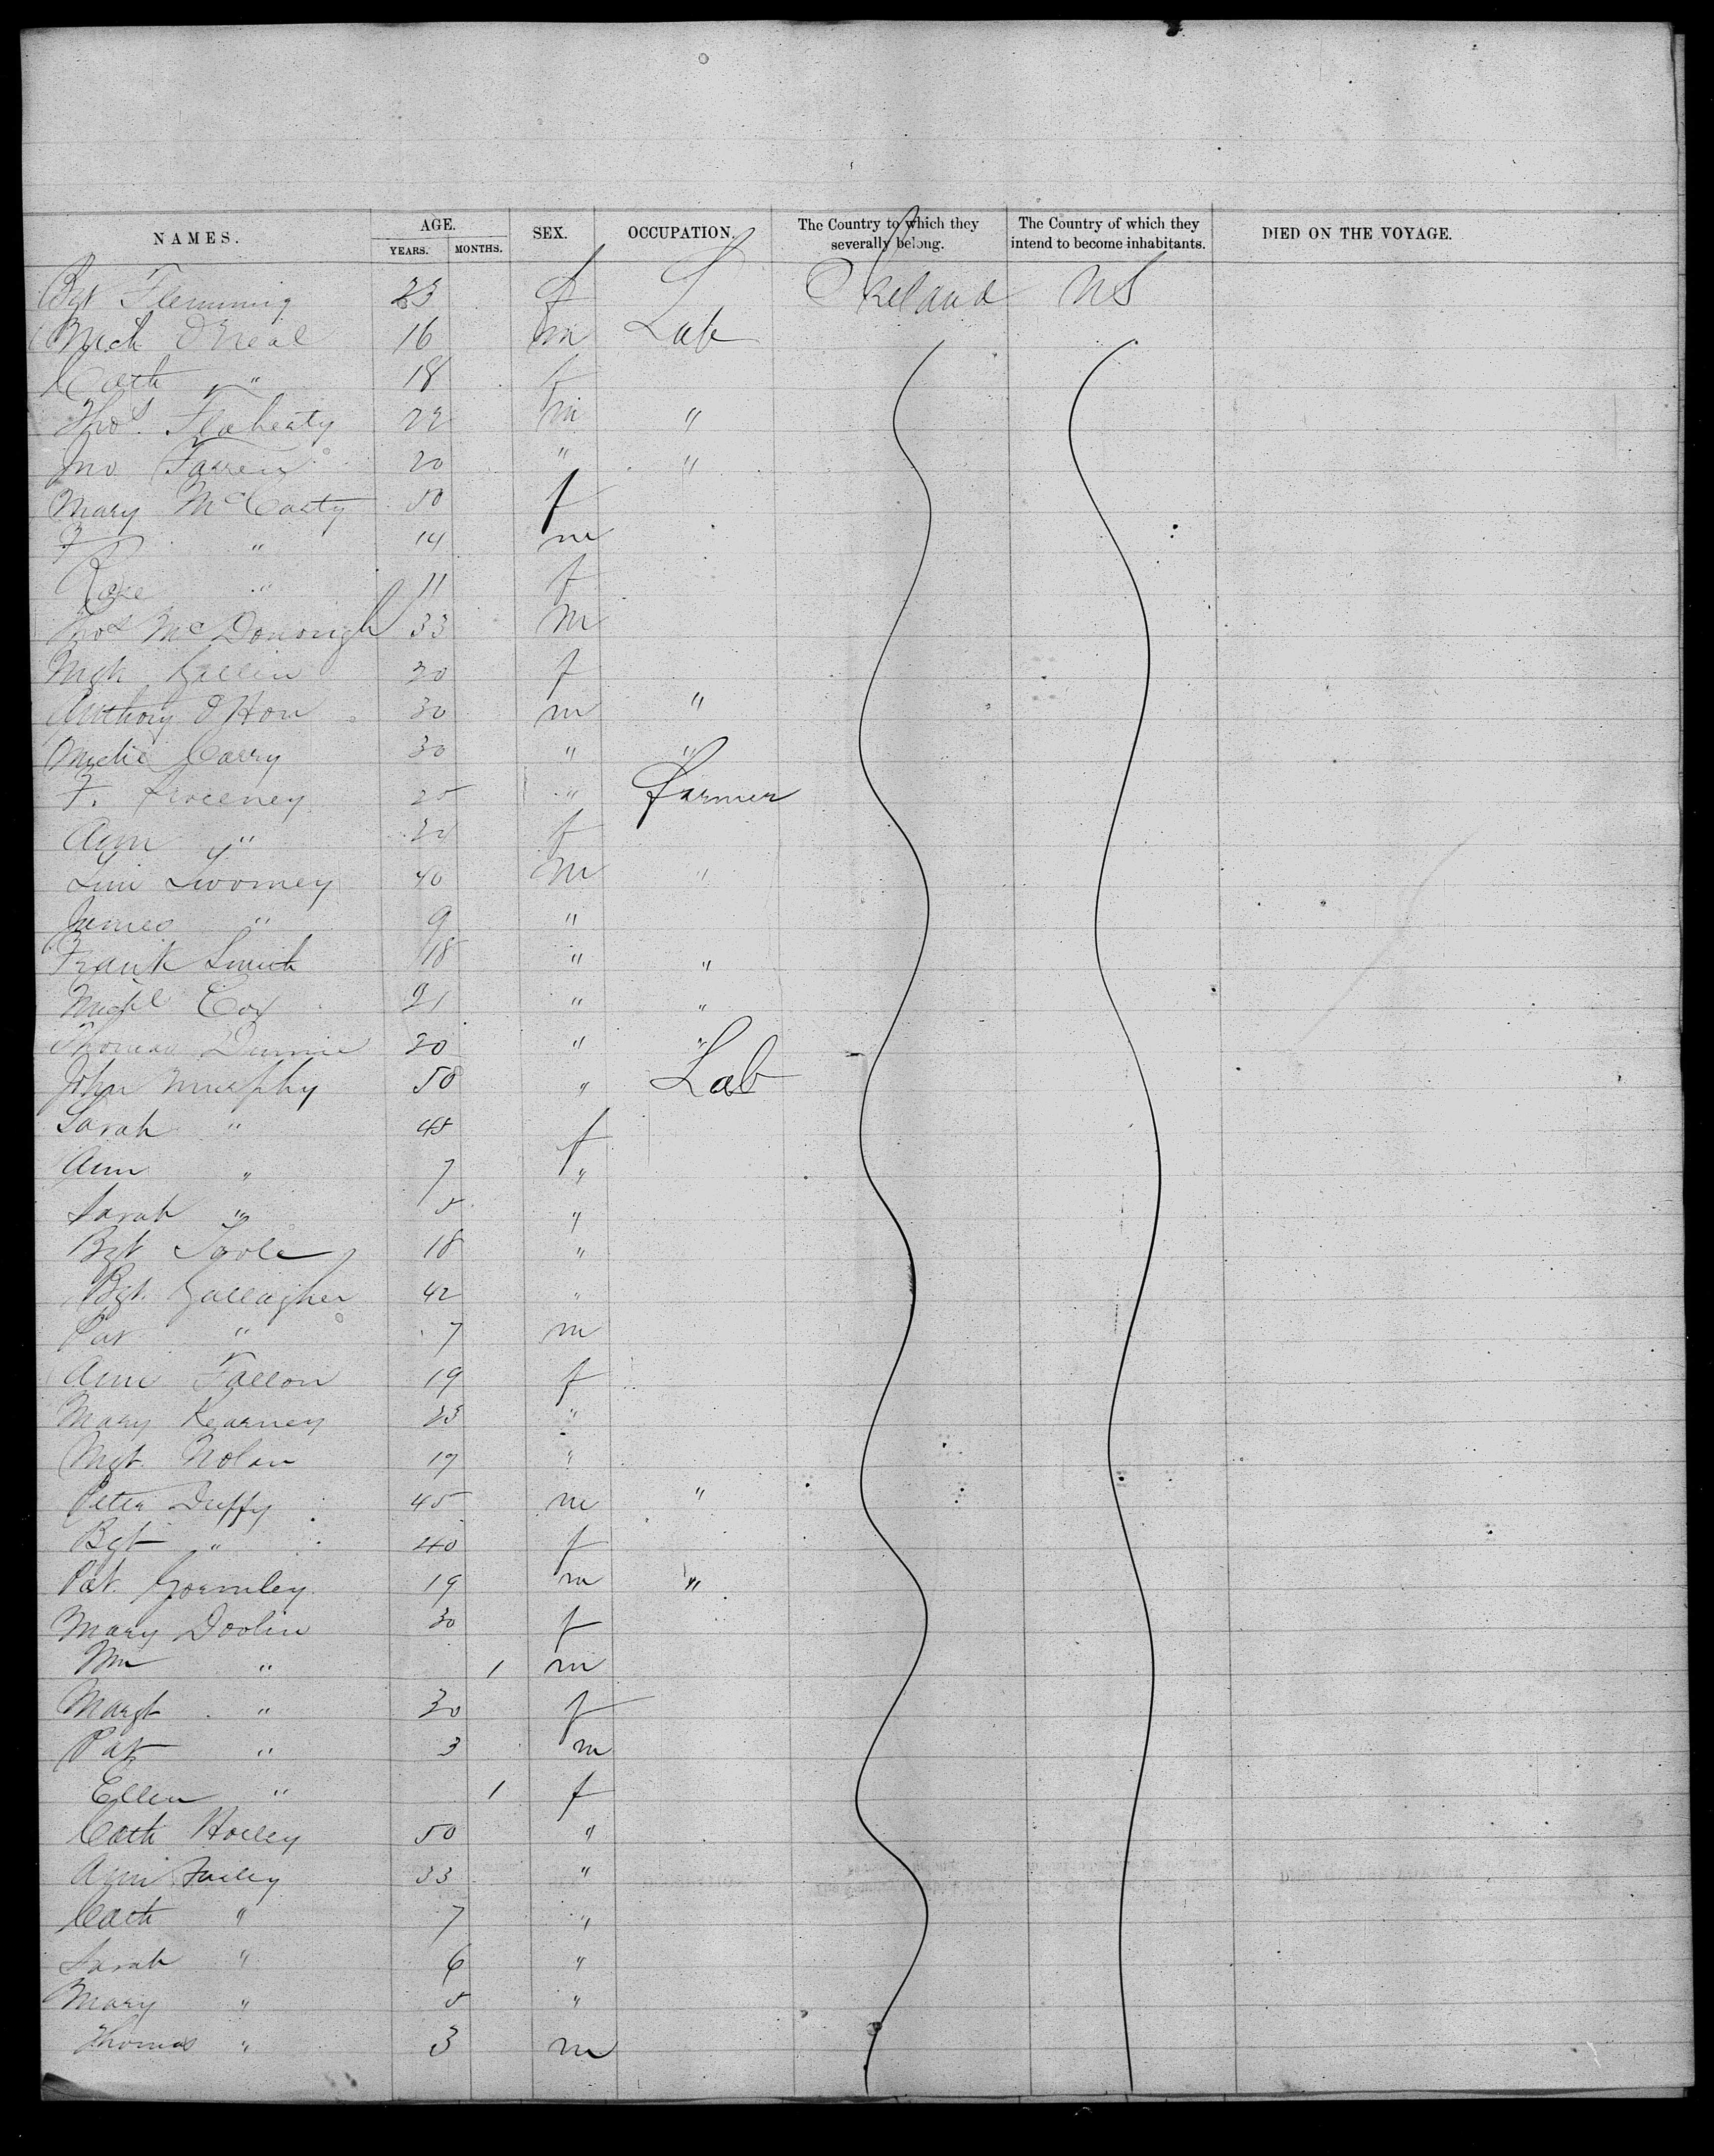 NAMES. AGE. YEARS. MONTHS. SEX. OCCUPATION. The Country to which they severally belong. The Country of which they intend to become inhabitants. DIED ON THE VOYAGE.
Bgt Flemming 23 f Ireland US
Mich O'Neal 16 m Lab
Cath " 18 f
Thos. Flaherty 22 m "
Jno Farren 20 " "
Mary McCarty 50 f
F " 14 m
Rose " 11 f
Thos McDonough 33 m
Mgt Gallin 20 f
Anthony O'Hon 30 m "
Carry 30 " "
F. 25 " Farmer
Ann " 24 f
Tim Twomey 40 m "
James " 9 "
Frank Smith 18 " "
Michl Cox 21 " "
Thomas Dunne 20 " "
John Murphy 50 " Lab
Sarah " 45 f
Ann " 7 "
Sarah " 5 "
Bgt Toole 18 "
Bgt. Gallagher 42 "
Pat " 7 m
Ann Fallon 19 f
Mary Kearney 23 "
Mgt. Nolan 19 "
Peter Duffy 45 m "
Bgt " 40 f
Pat. Gormley 19 m "
Mary Doolin 30 f
Wm " 1 m
Margt " 30 f
Pat " 3 m
Ellen " 1 f
Cath Holley 50 "
Ann Farley 33 "
Cath " 7 "
Sarah " 6 "
Mary " 5 "
Thomas " 3 m